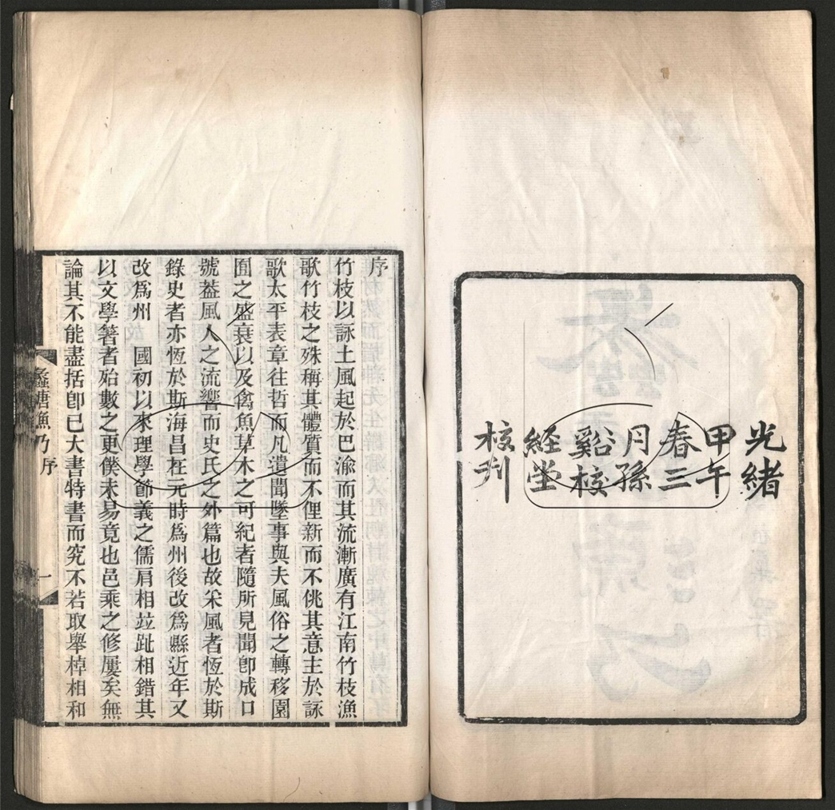 光緒
甲午
春三
月孫
谿校
経堂
校刋
序
竹枝以詠土風起於巴渝而其流漸廣有江南竹枝漁
歌竹枝之殊稱其體質而不俚新而不佻其意主於詠
歌太平表章往哲而凡遺聞墜事與夫風俗之轉移園
囿之盛衰以及禽魚草木之可紀者隨所見聞卽成口
號葢風人之流響而史氏之外篇也故采風者恆於斯
錄史者亦恆於斯海昌在元時爲州後改爲縣近年又
改爲州　國初以來理學節義之儒肩相竝趾相錯其
以文學著者殆數之更僕未易竟也邑乘之修屢矣無
論其不能盡括卽已大書特書而究不若取舉棹相和
蠡塘漁乃　序
一